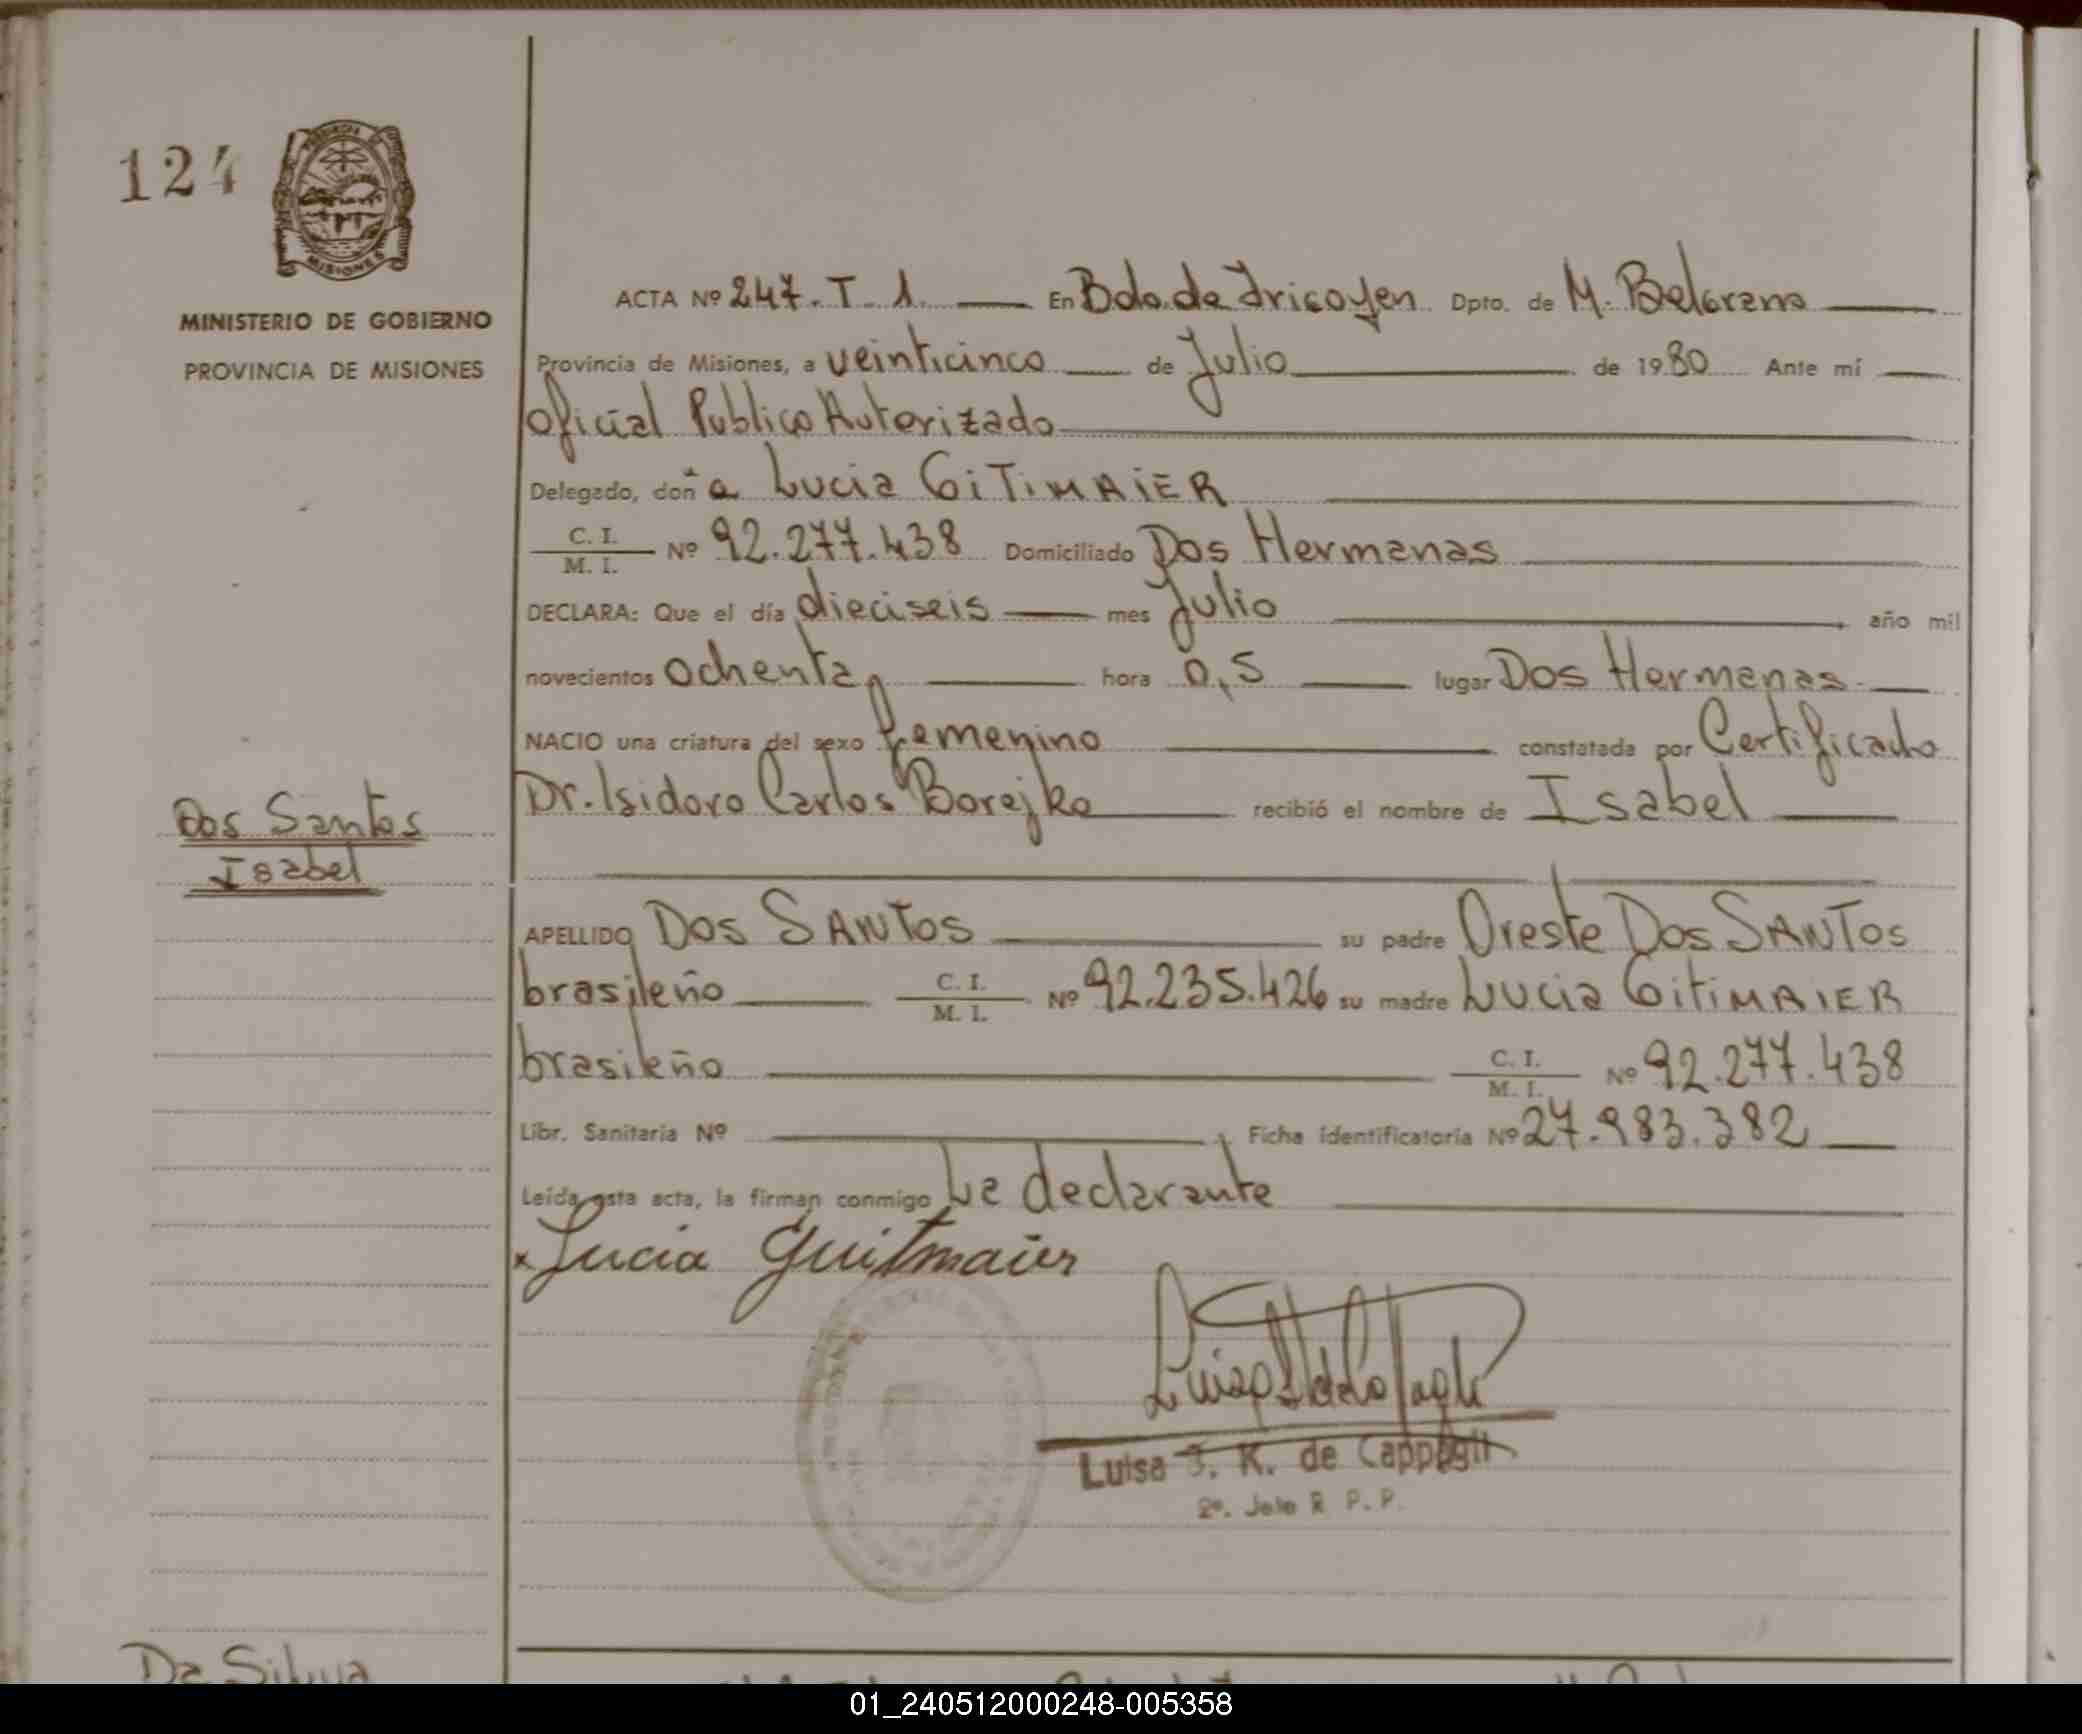 124
MISIONES
MINISTERIO DE GOBIERNO
PROVINCIA DE MISIONES
ACTA Nº 247. T. 1. En Bdo. de Irigoyen Dpto. de M. Belgrano
Provincia de Misiones, a veinticinco de Julio de 1980 Ante mí
Oficial Publico Autorizado
Delegado, doña Lucia GiTiMAiER
C. I. / M. I. Nº 92.277.438 Domiciliado Dos Hermanas
DECLARA: Que el día dieciseis mes Julio año mil
novecientos ochenta, hora 0,5 lugar Dos Hermanas
NACIO una criatura del sexo femenino constatada por Certificado
Dr. Isidoro Carlos Borejko recibió el nombre de Isabel
Dos Santos
Isabel
APELLIDO Dos SANTos su padre Oreste Dos SANTos
brasileño C. I. / M. I. Nº 92.235.426 su madre Lucia GitiMAIER
brasileño C. I. / M. I. Nº 92.277.438
Libr. Sanitaria Nº Ficha identificatoria Nº 27.983.382
Leída esta acta, la firman conmigo La declarante
x Lucia Guitmaier
Luisa J. K. de Cappagli
2º. Jefe R P. P.
Da Silva
01_240512000248-005358